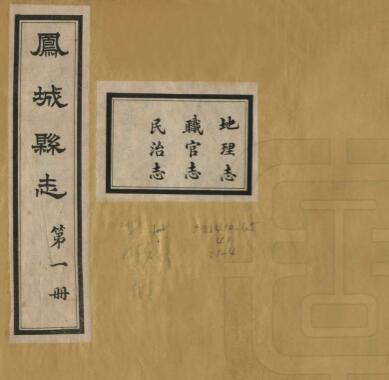 鳳城縣志
第一冊
地理志
職官志
民治志